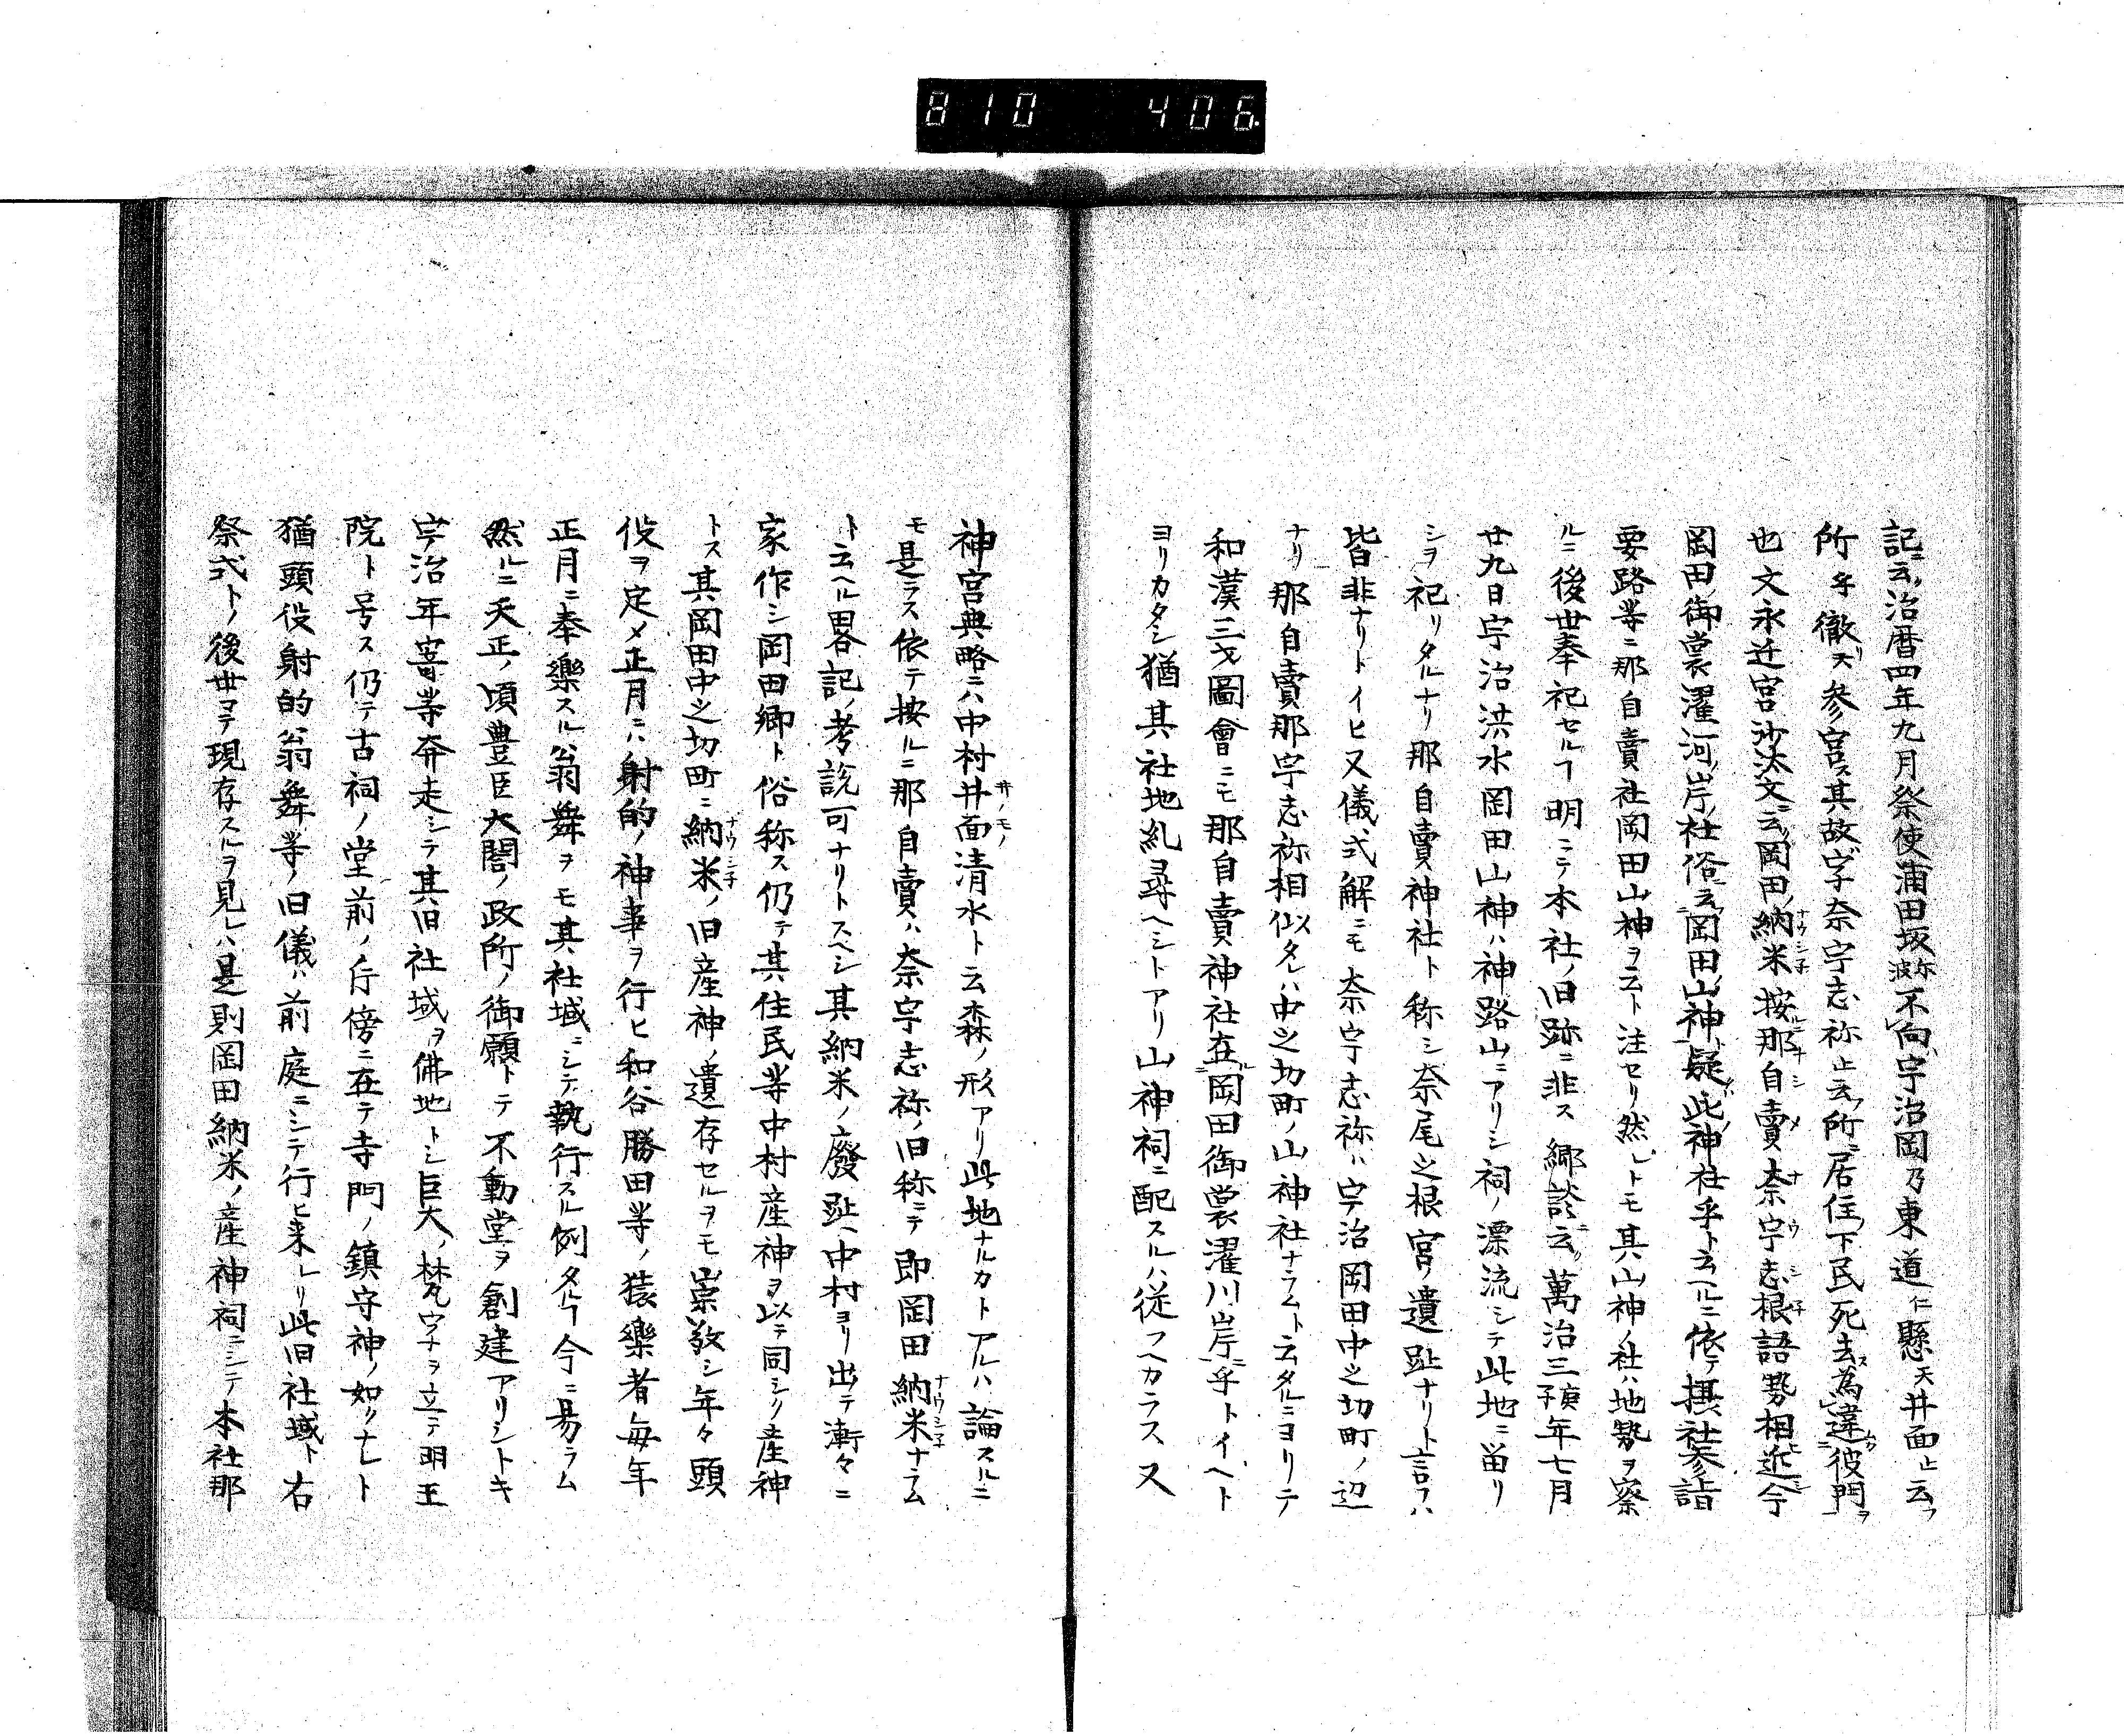 810 406
記ニ云ク治暦四年九月祭使浦田坂波祢不向宇治岡乃東道仁懸天井面止云フ
所乎徹天参宮ス其故ハ字奈宇志祢止云フ所ニ居住ノ下民死去ス為違彼門ヲ
也文永迁宮沙汰文ニ云ク岡田ノ納米按ルニ那自賣奈宇志根語勢相近シ今
岡田ノ御裳濯河ノ岸ノ社俗ニ云岡田ノ山神疑ハ此ノ神社乎ト云ヘルニ依テ摂社参詣
要路等ニ那自賣社岡田山神ヲ云ト注セリ然レトモ其山神ノ社ハ地勢ヲ察
ルニ後世奉祀セルヿ明ニテ本社ノ旧跡ニ非ス郷談ニ云ク萬治三庚子年七月
廿九日宇治洪水岡田山神ハ神路山ニアリシ祠ノ漂流シテ此地ニ畄リ
シヲ祀リタルナリ那自賣神社ト称シ奈尾之根宮ノ遺趾ナリト言フハ
皆非ナリトイヒ又儀式解ニモ奈宇志祢ハ宇治岡田中之切町ノ辺
ナリ那自賣那宇志祢相似タレハ中之切町ノ山神社ナラムト云タルニヨリテ
和漢三才圖會ニモ那自賣神社在岡田御裳濯川岸乎トイヘト
ヨリカタシ猶其社地糺尋ヘシトアリ山神祠ニ配スルハ従フヘカラス又
神宮典略ニハ中村井面清水ト云森ノ形アリ此地ナルカトアルハ論スルニ
モ足ラス依テ按ルニ那自賣ハ奈宇志祢ノ旧称ニテ即岡田納米ナラム
ト云ヘル畧記ノ考説可ナリトスヘシ其納米ノ廢趾ハ中村ヨリ出テ漸々ニ
家作シ岡田郷ト俗称ス仍テ其住民等中村産神ヲ以テ同シク産神
トス其岡田中之切町ニ納米ノ旧産神ノ遺存セルヲモ崇敬シ年々頭
役ヲ定メ正月ニハ射的ノ神事ヲ行ヒ和谷勝田等ノ猿樂者毎年
正月ニ奉樂スル翁舞ヲモ其社域ニシテ執行スル例タルヿ今ニ易ラム
然ルニ天正ノ頃豊臣大閤ノ政所ノ御願トテ不動堂ヲ創建アリシトキ
宇治年寄等奔走シテ其旧社域ヲ佛地トシ巨大ノ梵宇ヲ立テ明王
院ト号ス仍テ古祠ノ堂前ノ斤傍ニ在テ寺門ノ鎮守神ノ如クナレト
猶頭役射的翁舞等ノ旧儀ハ前庭ニシテ行ヒ来レリ此旧社域ト右
祭式トノ後世マテ現存スルヲ見レハ是則岡田納米ノ産神祠ニシテ本社那